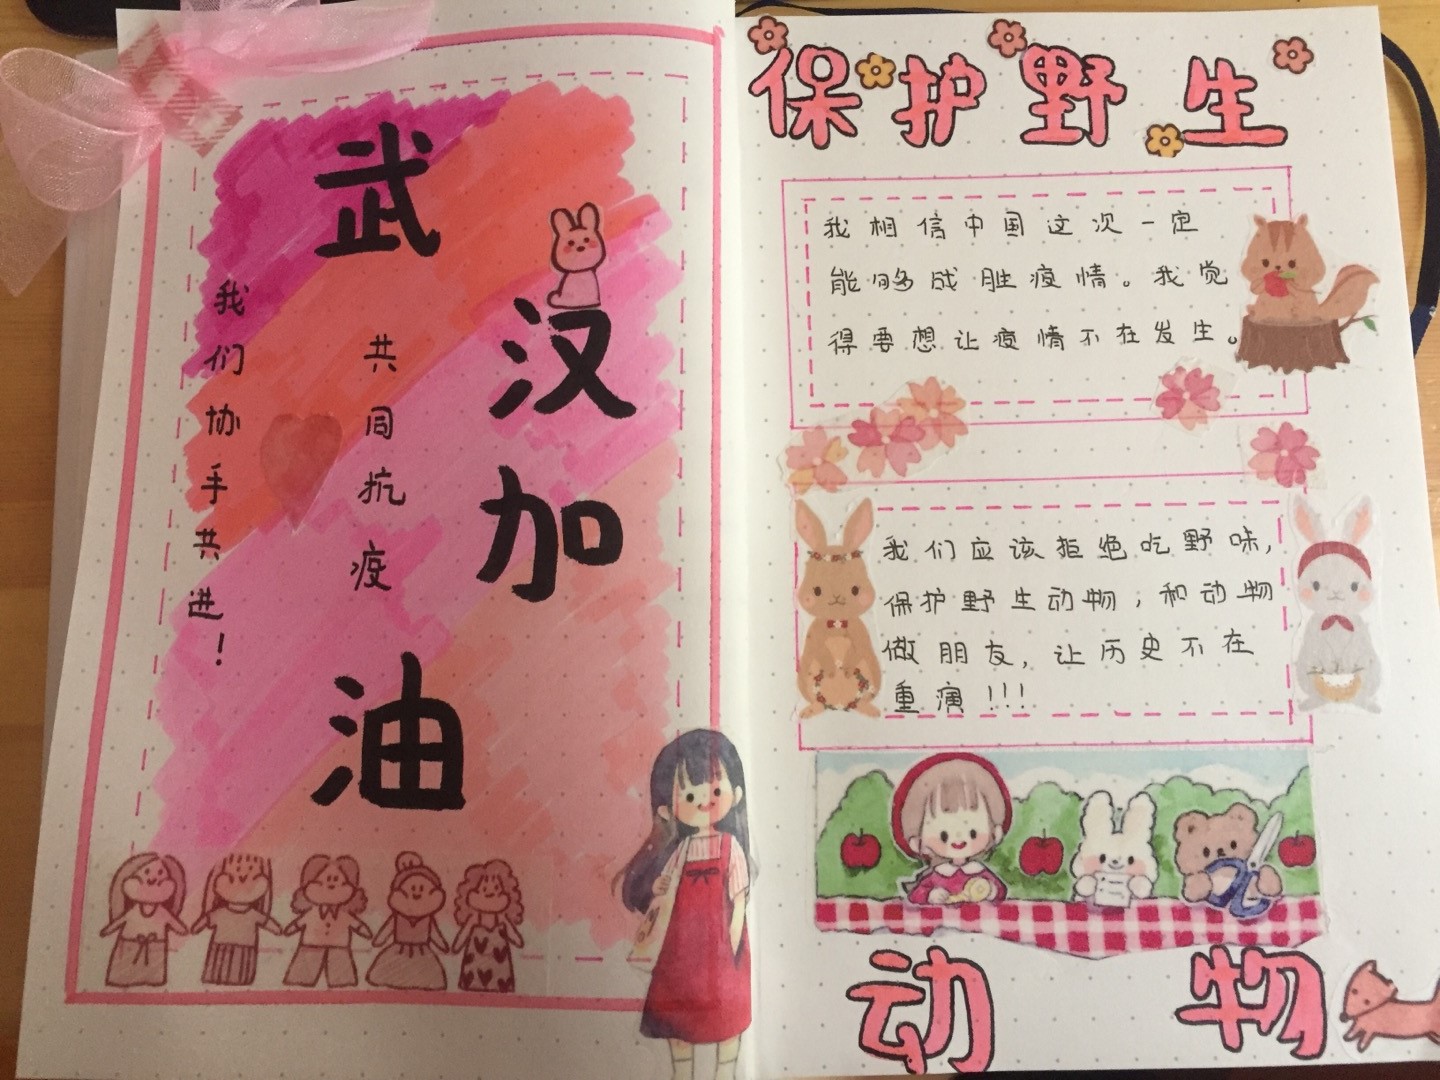 武汉加油
共同抗疫
我们协手共进！
保护野生
我相信中国这次一定
能够成胜疫情。我觉
得要想让疫情不在发生。
我们应该拒绝吃野味，
保护野生动物，和动物
做朋友，让历史不在
重演！！！
动物